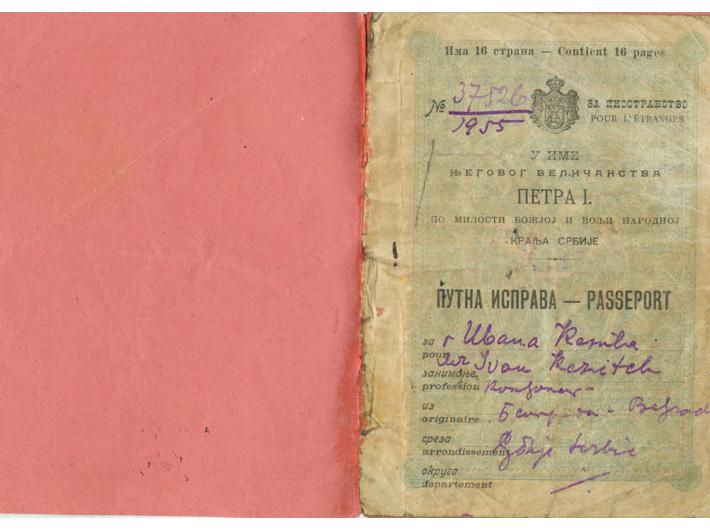 Има 16 страна — Contient 16 pages
№ 37526
1955
ЗА ИНОСТРАНСТВО
POUR L'ÉTRANGER
У ИМЕ
ЊЕГОВОГ ВЕЛИЧАНСТВА
ПЕТРА I.
ПО МИЛОСТИ БОЖЈОЈ И ВОЉИ НАРОДНОЈ
КРАЉА СРБИЈЕ
ПУТНА ИСПРАВА — PASSEPORT
за г Ивана
pour Ivan
занимање
profession
из
originaire Београда - Belgrad
среза
arrondissement Србије Serbie
округа
departement